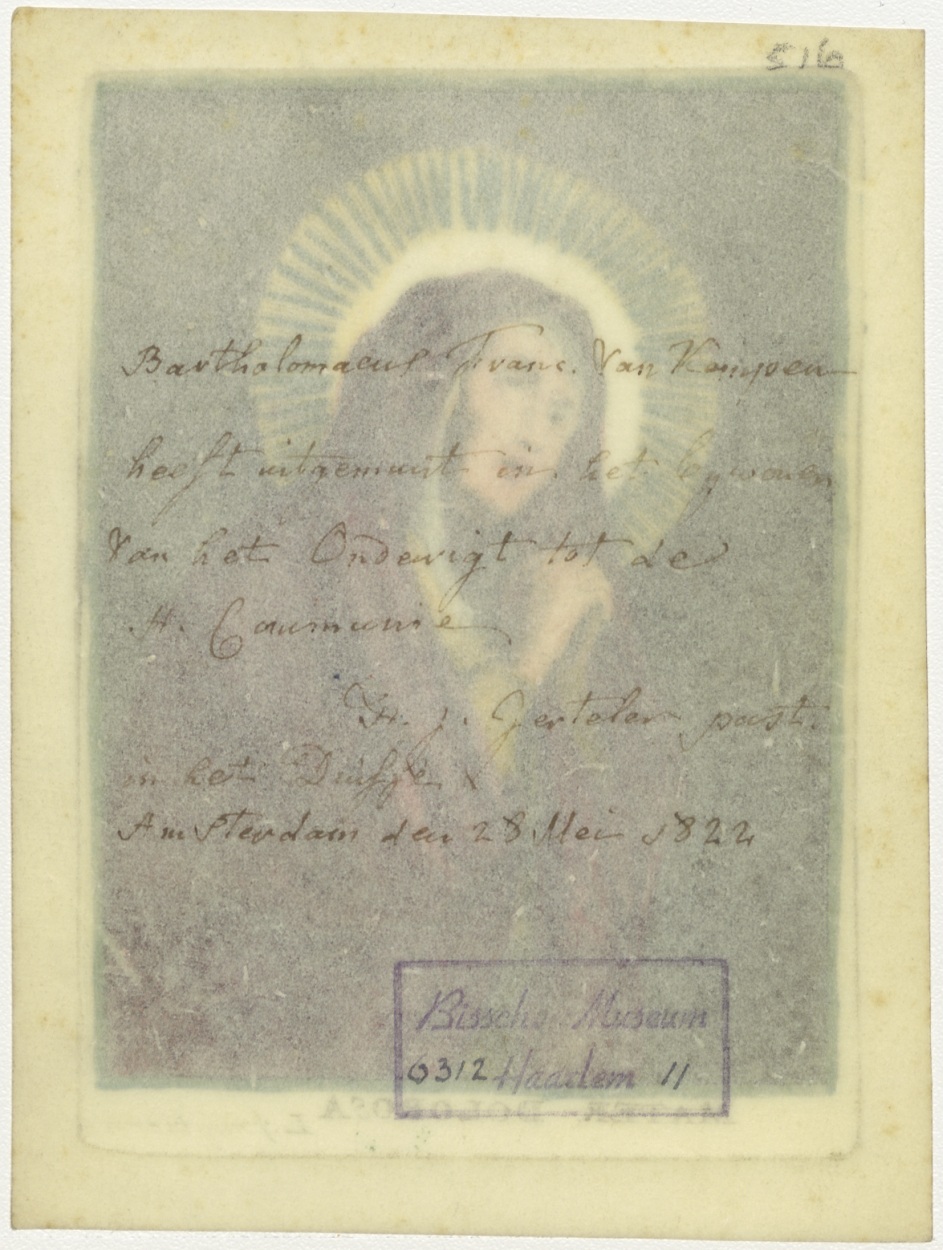 516
Bartholomaeus Franc. Van Kempen
heeft uitgemunt in het bywonen
Van het Onderwigt tot de
H. Communie
H. J. past.
in het
Amsterdam den 28 Mei 1822
Bisscho. Museum
6312 Haarlem 11
MATER DOLOROSA